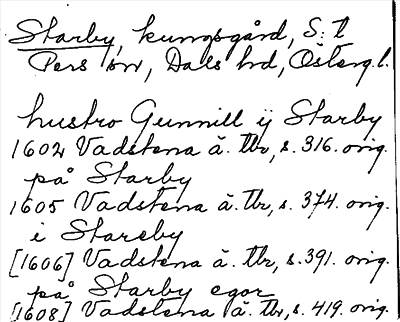 Starby, kungsgård, S:t
Pers sn, Dals hd, Österg.l.
hustro Gunnill ij Starby
1602 Vadstena ä. tbr, s. 316. orig.
på Starby
1605 Vadstena ä. tbr, s. 374. orig.
i Stareby
[1606] Vadstena ä. tbr, s. 391. orig.
på Starby egor
[1608] Vadstena ä. tbr, s. 419. orig.